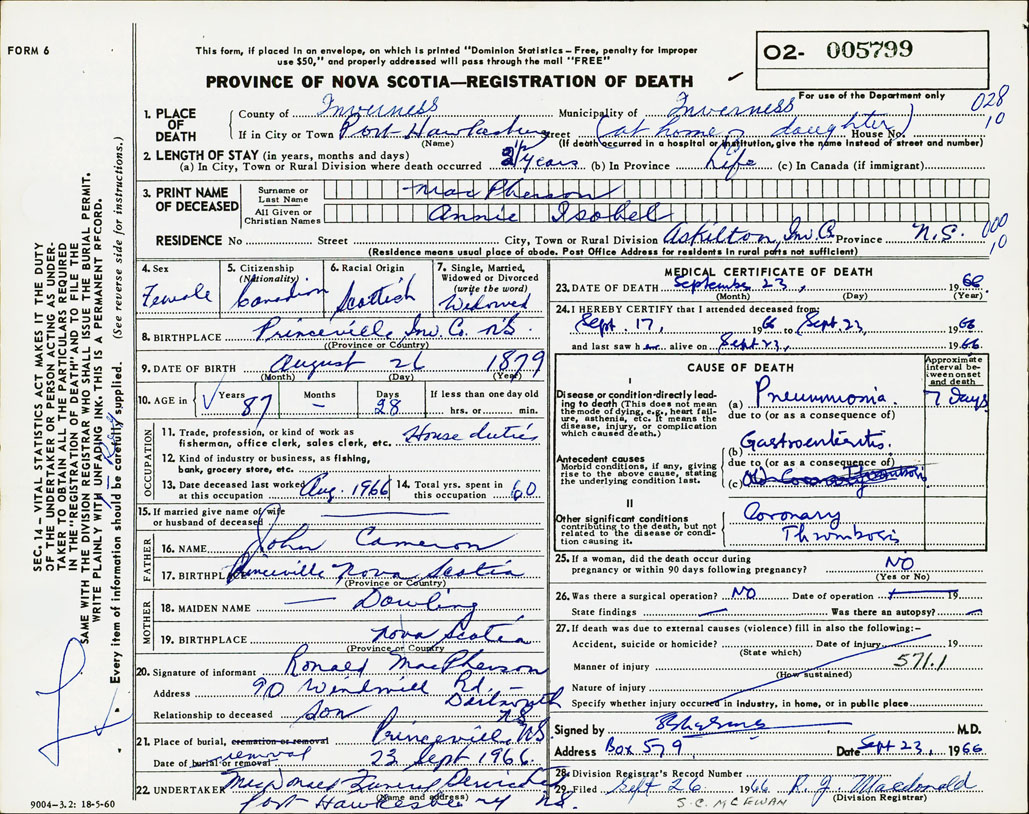 FORM 6
This form, if placed in an envelope, on which is printed "Dominion Statistics – Free, penalty for improper
use $50," and properly addressed will pass through the mail "FREE"
O2- 005799
PROVINCE OF NOVA SCOTIA—REGISTRATION OF DEATH
For use of the Department only
028
10
1. PLACE OF DEATH
County of Inverness Municipality of Inverness
If in City or Town Port Hawkesbury Street (at home daughter) House No.
(Name) (If death occurred in a hospital or institution, give the name instead of street and number)
2. LENGTH OF STAY (in years, months and days)
(a) In City, Town or Rural Division where death occurred years (b) In Province Life (c) In Canada (if immigrant)
3. PRINT NAME OF DECEASED
Surname or Last Name MacPherson
All Given or Christian Names Annie Isobel
RESIDENCE No Street City, Town or Rural Division Askilton, Inv. Co. Province N.S.
000
10
(Residence means usual place of abode. Post Office Address for residents in rural parts not sufficient)
4. Sex Female
5. Citizenship (Nationality) Canadian
6. Racial Origin Scottish
7. Single, Married, Widowed or Divorced (write the word) Widowed
8. BIRTHPLACE Princeville Inv. Co. N.S.
(Province or Country)
9. DATE OF BIRTH August 26 1879
(Month) (Day) (Year)
10. AGE in Years 87 Months – Days 28 If less than one day old hrs. or min.
OCCUPATION
11. Trade, profession, or kind of work as
fisherman, office clerk, sales clerk, etc. House duties
12. Kind of industry or business, as fishing,
bank, grocery store, etc.
13. Date deceased last worked
at this occupation Aug. 1966
14. Total yrs. spent in
this occupation 60
15. If married give name of wife
or husband of deceased
FATHER
16. NAME John Cameron
17. BIRTHPLACE Princeville Nova Scotia
(Province or Country)
MOTHER
18. MAIDEN NAME — Dowling
19. BIRTHPLACE Nova Scotia
(Province or Country)
20. Signature of informant Ronald MacPherson
Address 90 Windmill Rd. – Dartmouth NS
Relationship to deceased son
21. Place of burial, cremation or removal Princeville, NS.
Date of burial or removal removal 23 Sept 1966
22. UNDERTAKER
(Name and address)
Port Hawkesbury NS.
MEDICAL CERTIFICATE OF DEATH
23. DATE OF DEATH September 23, 1966
(Month) (Day) (Year)
24. I HEREBY CERTIFY that I attended deceased from
Sept. 17, 1966 to Sept. 23, 1966
and last saw her alive on Sept 23, 1966.
CAUSE OF DEATH
Approximate interval between onset and death
I
Disease or condition directly leading to death (This does not mean the mode of dying, e.g., heart failure, asthenia, etc. It means the disease, injury, or complication which caused death.)
(a) Pneumonia. 7 days
due to (or as a consequence of)
Antecedent causes
Morbid conditions, if any, giving rise to the above cause, stating the underlying condition last.
(b) Gastroenteritis.
due to (or as a consequence of)
(c) Old Coronary Thrombosis
II
Other significant conditions
contributing to the death, but not related to the disease or condition causing it.
Coronary
Thrombosis
25. If a woman, did the death occur during
pregnancy or within 90 days following pregnancy? NO
(Yes or No)
26. Was there a surgical operation? NO Date of operation 19
State findings — Was there an autopsy? —
27. If death was due to external causes (violence) fill in also the following:-
Accident, suicide or homicide? Date of injury 19
(State which)
Manner of injury 571.1
(How sustained)
Nature of injury
Specify whether injury occurred in industry, in home, or in public place
Signed by M.D.
Address Box 579 Date Sept 23, 1966
28. Division Registrar's Record Number
29. Filed Sept 26 1966 R. J. Macdonald
(Division Registrar)
S.C. MCEWAN
SEC. 14 – VITAL STATISTICS ACT MAKES IT THE DUTY
OF THE UNDERTAKER OR PERSON ACTING AS UNDER-
TAKER TO OBTAIN ALL THE PARTICULARS REQUIRED
IN THE "REGISTRATION OF DEATH" AND TO FILE THE
SAME WITH THE DIVISION REGISTRAR WHO SHALL ISSUE THE BURIAL PERMIT.
WRITE PLAINLY WITH UNFADING INK. THIS IS A PERMANENT RECORD.
Every item of information should be carefully supplied. (See reverse side for instructions.)
9004–3.2: 18-5-60